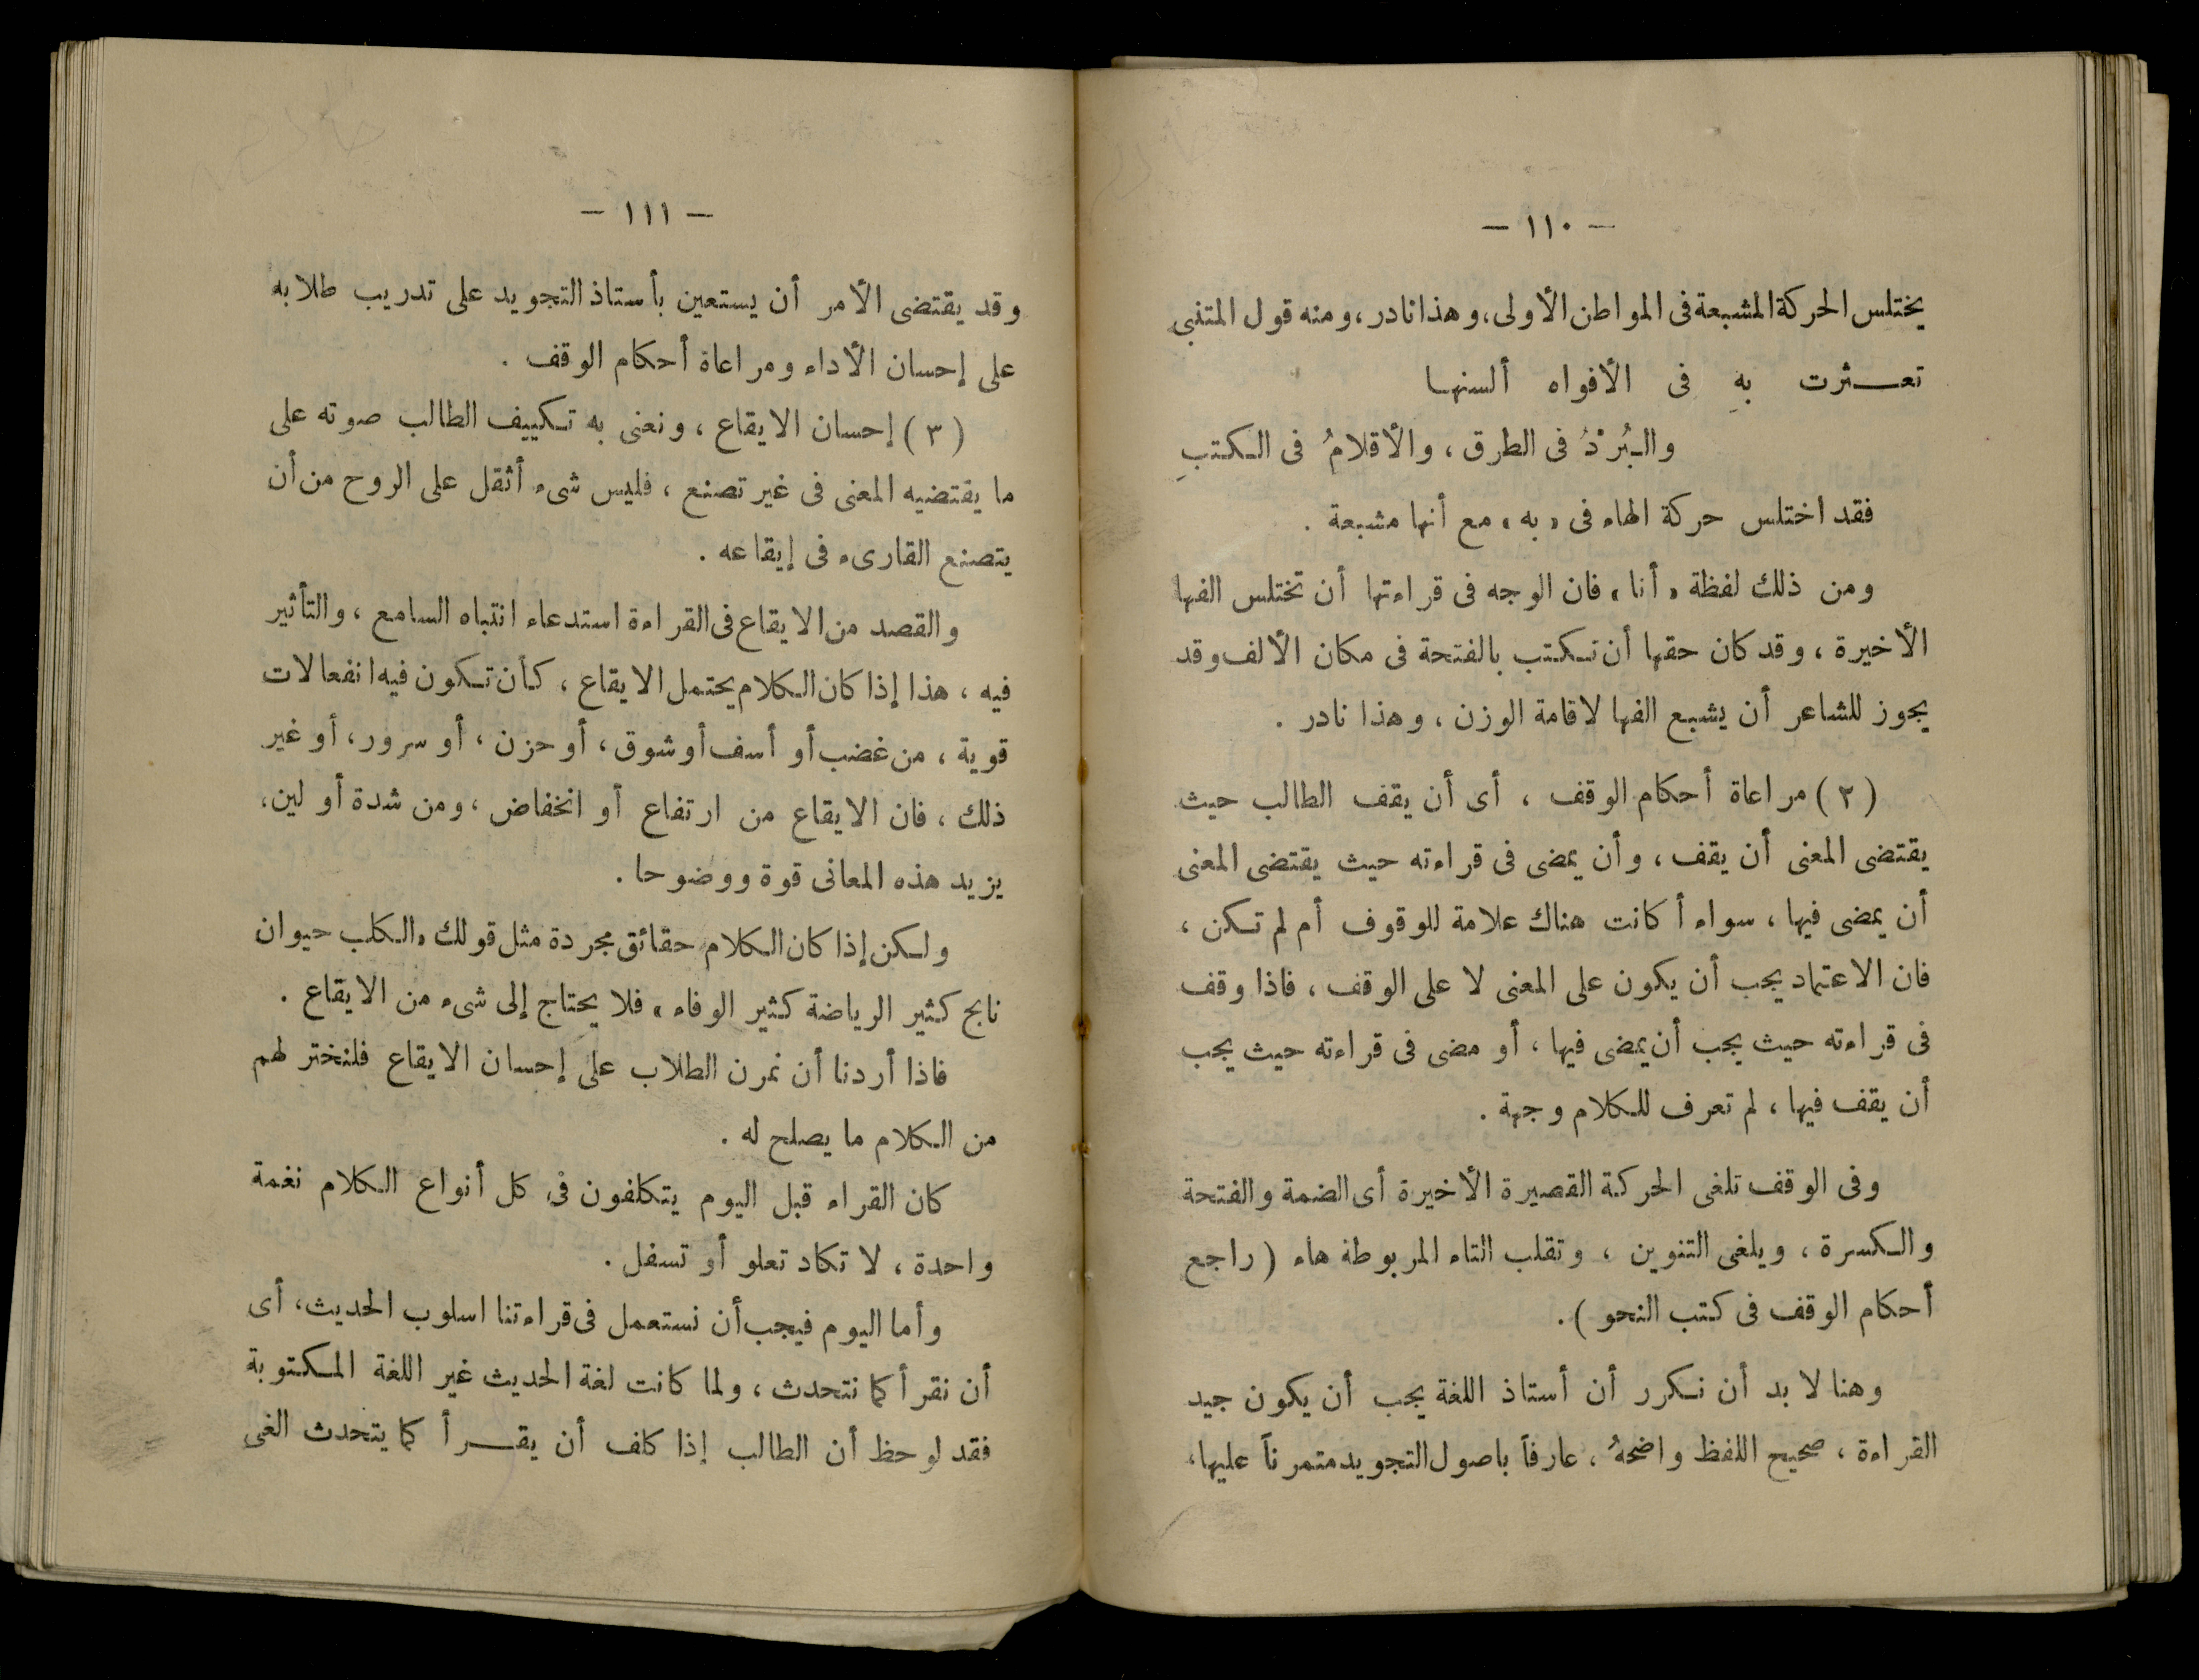 — ١١٠ —
يختلس الحركة المشبعة فى المواطن الأولى، وهذا نادر، ومنه قول المتنبى
تعـــثرت بهِ فى الأفواه ألسنها
والبُرْدُ فى الطرق ، والأقلامُ فى الكتبِ
فقد اختلس حركة الهاء فى « به » مع أنها مشبعة .
ومن ذلك لفظة « أنا » فان الوجه فى قراءتها أن تختلس الفها
الأخيرة ، وقد كان حقها أن تكتب بالفتحة فى مكان الألف وقد
يجوز للشاعر أن يشبع الفها لاقامة الوزن ، وهذا نادر .
( ٢ ) مراعاة أحكام الوقف ، أى أن يقف الطالب حيث
يقتضى المعنى أن يقف ، وأن يمضى فى قراءته حيث يقتضى المعنى
أن يمضى فيها ، سواء أكانت هناك علامة للوقوف أم لم تكن ،
فان الاعتماد يجب أن يكون على المعنى لا على الوقف ، فاذا وقف
فى قراءته حيث يجب أن يمضى فيها ، أو مضى فى قراءته حيث يجب
أن يقف فيها ، لم تعرف للكلام وجهة .
وفى الوقف تلغى الحركة القصيرة الأخيرة أى الضمة والفتحة
والكسرة ، ويلغى التنوين ، وتقلب التاء المربوطة هاء ( راجع
أحكام الوقف فى كتب النحو ) .
وهنا لا بد أن نكرر أن أستاذ اللغة يجب أن يكون جيد
القراءة ، صحيح اللفظ واضحهُ ، عارفاً باصول التجويد متمرناً عليها،
— ١١١ —
وقد يقتضى الأمر أن يستعين بأستاذ التجويد على تدريب طلابه
على إحسان الأداء ومراعاة أحكام الوقف .
( ٣ ) إحسان الايقاع ، ونعنى به تكييف الطالب صوته على
ما يقتضيه المعنى فى غير تصنع ، فليس شىء أثقل على الروح من أن
يتصنع القارىء فى إيقاعه .
والقصد من الايقاع فى القراءة استدعاء انتباه السامع ، والتأثير
فيه ، هذا إذا كان الكلام يحتمل الايقاع ، كأن تكون فيه انفعالات
قوية ، من غضب أو أسف أو شوق ، أو حزن ، أو سرور ، أو غير
ذلك ، فان الايقاع من ارتفاع أو انخفاض ، ومن شدة أو لين،
يزيد هذه المعانى قوة ووضوحا .
ولكن إذا كان الكلام حقائق مجردة مثل قولك « الكلب حيوان
نابح كثير الرياضة كثير الوفاء » فلا يحتاج إلى شىء من الايقاع .
فاذا أردنا أن نمرن الطلاب على إحسان الايقاع فلنختر لهم
من الكلام ما يصلح له .
كان القراء قبل اليوم يتكلفون فى كل أنواع الكلام نغمة
واحدة ، لا تكاد تعلو أو تسفل .
وأما اليوم فيجب أن نستعمل فى قراءتنا اسلوب الحديث، أى
أن نقرأ كما نتحدث ، ولما كانت لغة الحديث غير اللغة المكتوبة
فقد لوحظ أن الطالب إذا كلف أن يقـــرأ كما يتحدث الغى